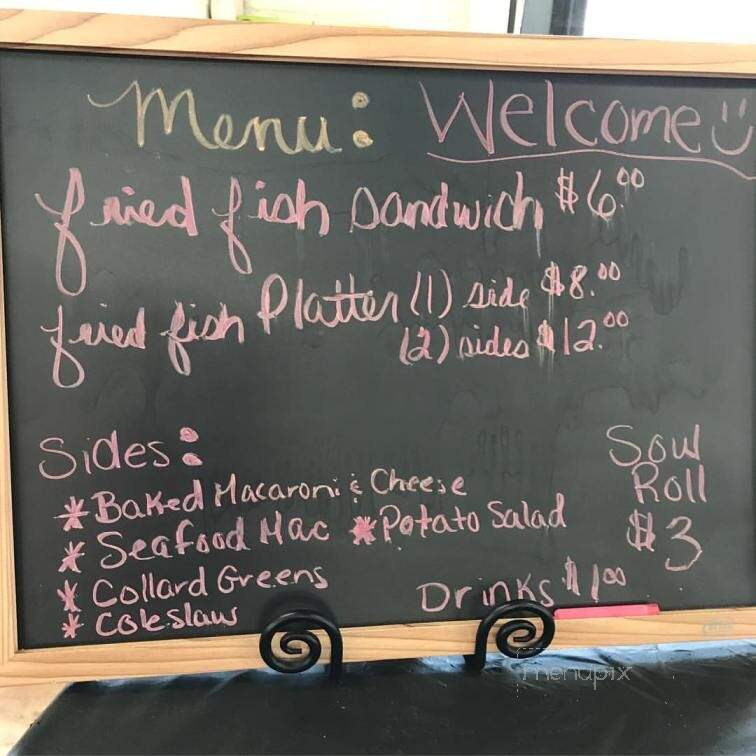 Menu: Welcome
fried fish sandwich $6.00
fried fish Platter (1) side $8.00
(2) sides $12.00
Sides:
* Baked Macaroni & Cheese
* Seafood Mac * Potato Salad
* Collard Greens
* Coleslaw
Soul
Roll
$3
Drinks $1.00
menupix